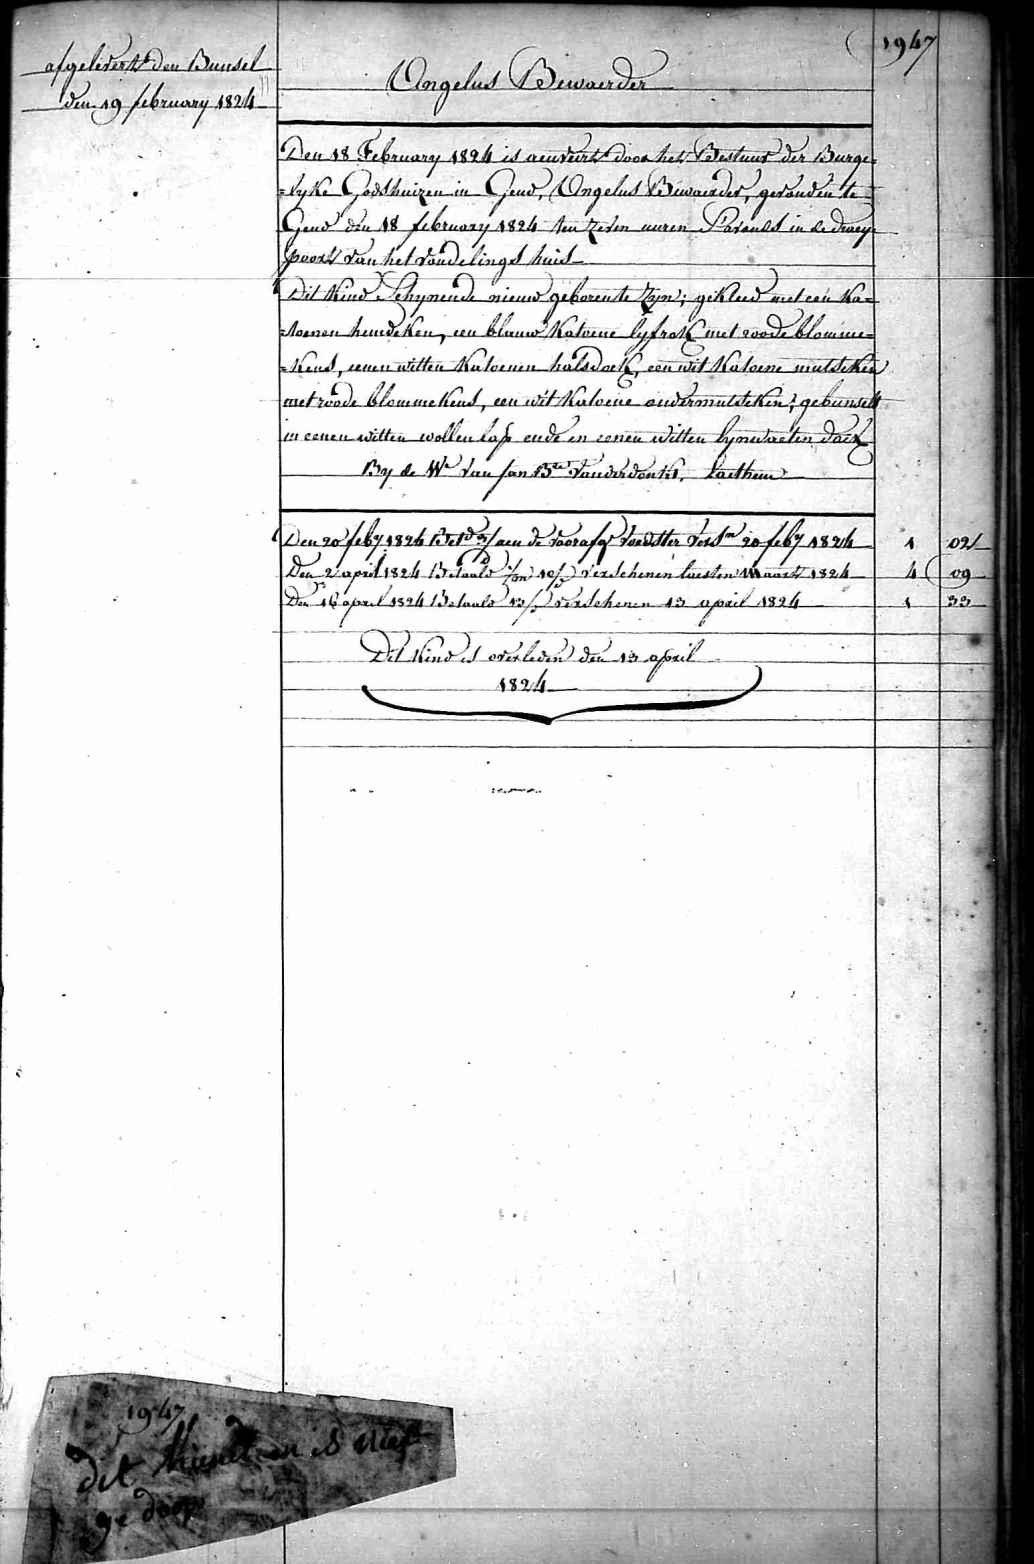 1947
afgelevert den Bunsel
den 19 february 1824
Angelus Bewaerder
Den 18 February 1824 is aenveirt door het Bestuur der Burge=
=lyke Godshuizen in Gend, Angelus Bewaerder, gevonden te
Gend den 18 february 1824 ten zeven uuren s'avonds in de draey=
poort van het vondelings huis
Dit Kind Schynende nieuw geboren te zyn; gekleed met een Ka=
=toenen hemdeken, een blauw Katoene lyfrok met roode blomme=
=kens, eenen witten Katoenen halsdoek, een wit Katoene mutsteken
met roode blommekens, een wit Katoene ondermutsteken; gebunselt
in eenen witten wollen lap ende in eenen witten lynwaeten doek
By de We van Jan Bte Vanderdonkt, Laethem
Den 20 feby 1824 Betd aen de voorafge voedster vers.n 20 feby 1824 1 02
Den 2 april 1824 Betaald verschenen laesten maart 1824 4 09
Den 16 april 1824 Betaald 13/ verschenen 13 april 1824 1 33
Dit Kind is overleden den 13 april
1824
1947
dit is niet
ge doop